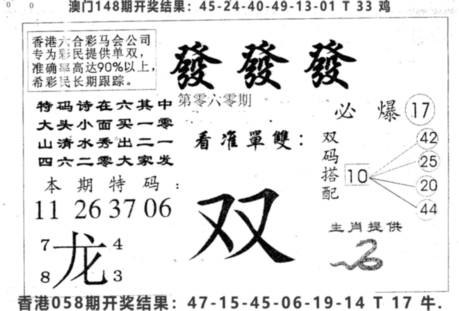 澳门148期开奖结果：45-24-40-49-13-01 T 33 鸡
香港六合彩马会公司
专为彩民提供单双，
准确率高达90%以上，
希彩民长期跟踪。
發 發 發
第零六零期
特码诗在六其中
大头小面买一零
山清水秀出二一
四六二零大家发
看准單雙：
双
必爆 17
双码搭配
10
42
25
20
44
本期特码：
11 26 37 06
7 4
龙
8 3
生肖提供
香港058期开奖结果：47-15-45-06-19-14 T 17 牛.